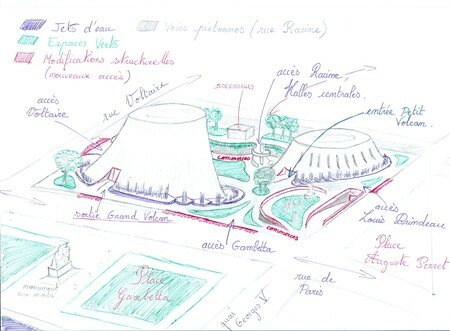 Jets d'eau
Voies piétonnes (rue Racine)
Espaces Verts
Modifications structurelles
(nouveaux accès)
accès
Voltaire
rue Voltaire
ascenseurs
accès Racine,
Halles centrales.
entrée Petit
Volcan.
commerces
sortie Grand Volcan
commerces
accès
Louis Brindeau
accès Gambetta
Place
Auguste Perret
rue de
Paris
Place
Gambetta
monument
aux morts
quai Georges V.